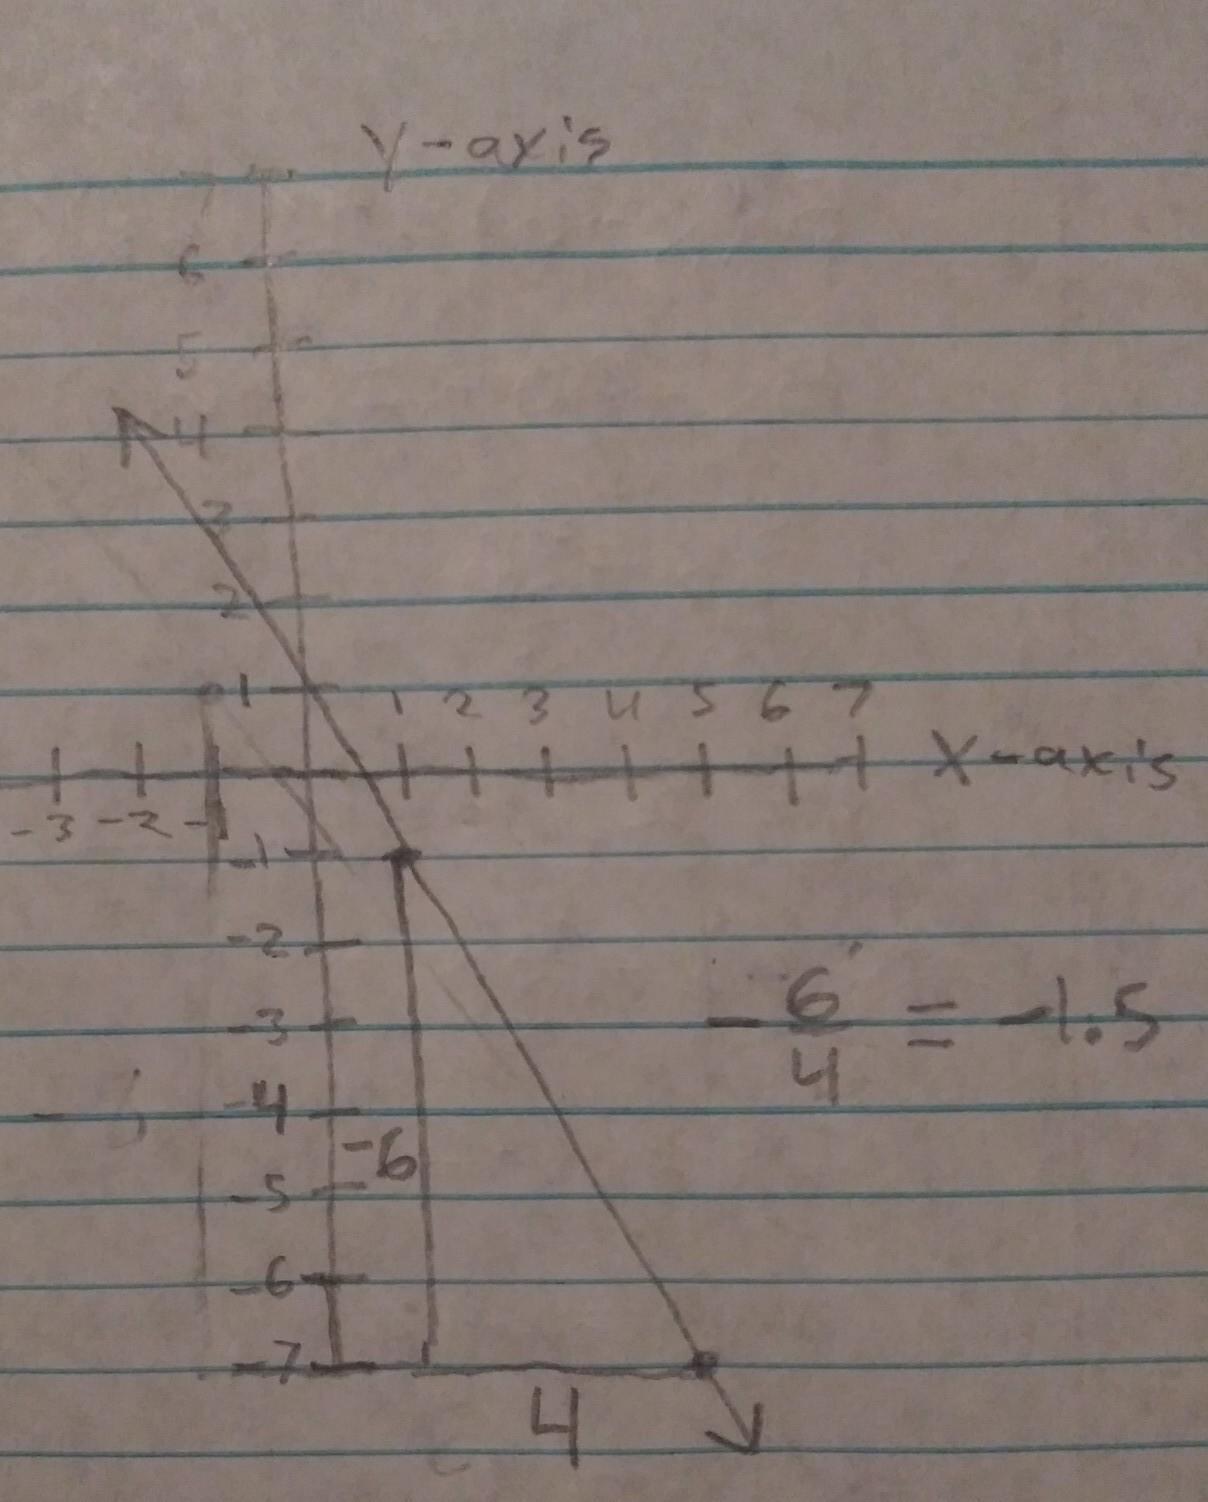 Y-axis
7
6
5
4
3
2
1
1 2 3 4 5 6 7
X-axis
-3 -2 -1
-1
-2
-3
-6/4 = -1.5
-4
-6
-5
-6
-7
4